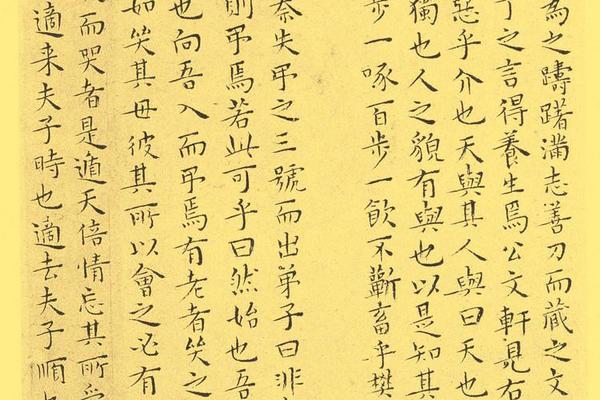 為之躊躇滿志善刀而藏之文
丁之言得養生焉公文軒見右
惡乎介也天與其人與曰天也
獨也人之貌有與也以是知其
步一啄百步一飲不蘄畜乎樊
秦失弔之三號而出弟子曰非
則弔焉若此可乎曰然始也吾
也向吾入而弔焉有老者哭之
如哭其母彼其所以會之必有
而哭者是遁天倍情忘其所受
適来夫子時也適去夫子順